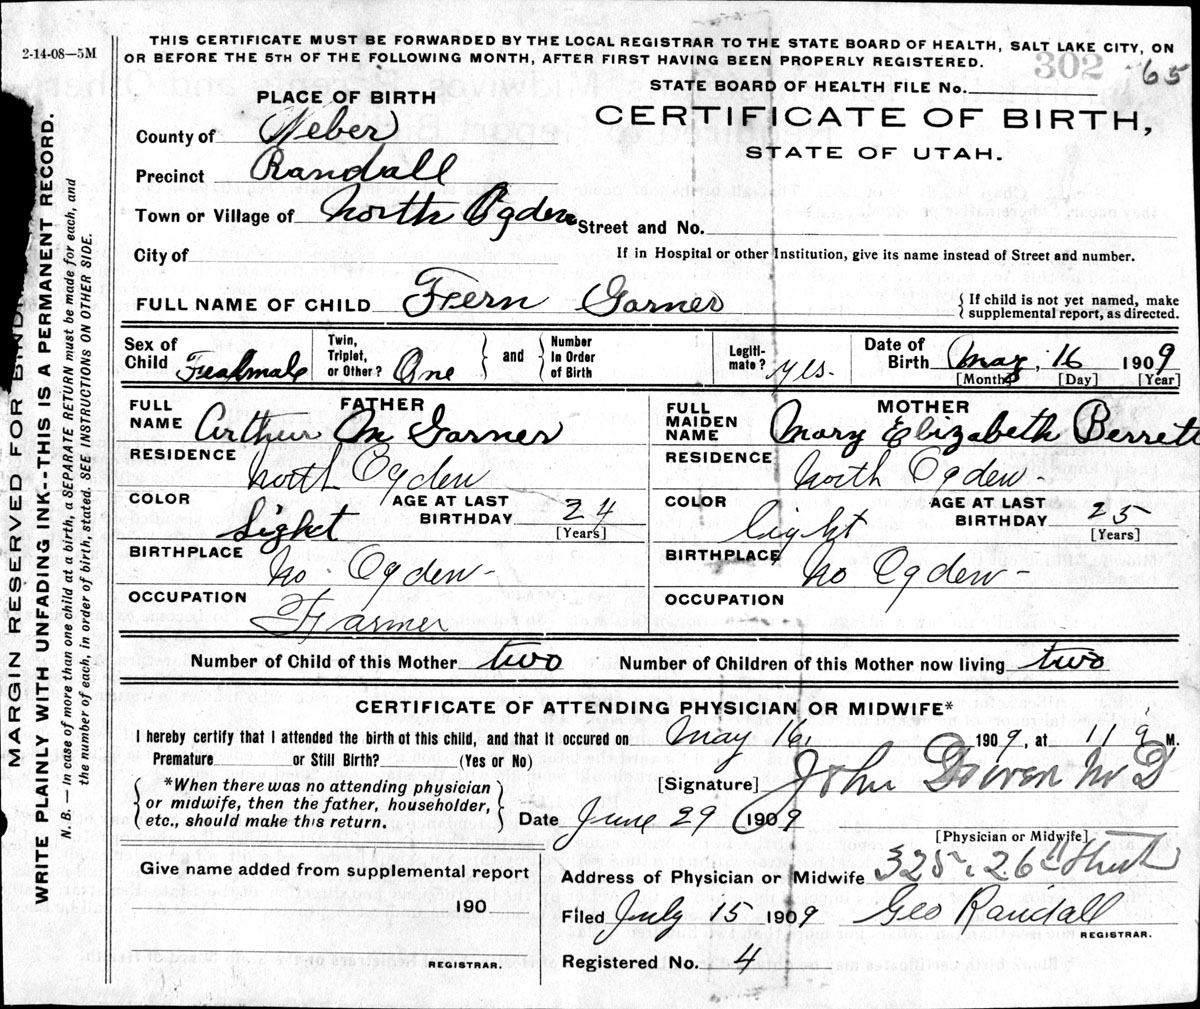 2-14-08—5M
THIS CERTIFICATE MUST BE FORWARDED BY THE LOCAL REGISTRAR TO THE STATE BOARD OF HEALTH, SALT LAKE CITY, ON
OR BEFORE THE 5TH OF THE FOLLOWING MONTH, AFTER FIRST HAVING BEEN PROPERLY REGISTERED.
302 65
STATE BOARD OF HEALTH FILE No.
PLACE OF BIRTH
CERTIFICATE OF BIRTH,
STATE OF UTAH.
County of Weber
Precinct Randall
Town or Village of North Ogden Street and No.
City of If in Hospital or other Institution, give its name instead of Street and number.
FULL NAME OF CHILD Fern Garner { If child is not yet named, make
supplemental report, as directed.
Sex of Child Fealmale Twin, Triplet, or Other? One } and { Number In Order of Birth Legiti-mate? yes. Date of Birth May, 16 1909
[Month] [Day] [Year]
FATHER
FULL NAME Arthur M Garner
RESIDENCE North Ogden
COLOR Light AGE AT LAST BIRTHDAY 24
[Years]
BIRTHPLACE No. Ogden-
OCCUPATION Farmer
MOTHER
FULL MAIDEN NAME Mary Elizabeth Berrett
RESIDENCE North Ogden-
COLOR light AGE AT LAST BIRTHDAY 25
[Years]
BIRTHPLACE No Ogden-
OCCUPATION
Number of Child of this Mother two Number of Children of this Mother now living two
CERTIFICATE OF ATTENDING PHYSICIAN OR MIDWIFE*
I hereby certify that I attended the birth of this child, and that it occured on May 16, 1909, at 11 M.
Premature or Still Birth? (Yes or No)
[Signature] John Dowen M D
{ *When there was no attending physician
or midwife, then the father, householder,
etc., should make this return. }
Date June 29 1909
[Physician or Midwife]
Give name added from supplemental report
190
REGISTRAR.
Address of Physician or Midwife 325. 26th Street
Filed July 15 1909 Geo Randall
REGISTRAR.
Registered No. 4
MARGIN RESERVED FOR
WRITE PLAINLY WITH UNFADING INK--THIS IS A PERMANENT RECORD.
N. B.—In case of more than one child at a birth, a SEPARATE RETURN must be made for each, and
the number of each, in order of birth, stated. SEE INSTRUCTIONS ON OTHER SIDE.